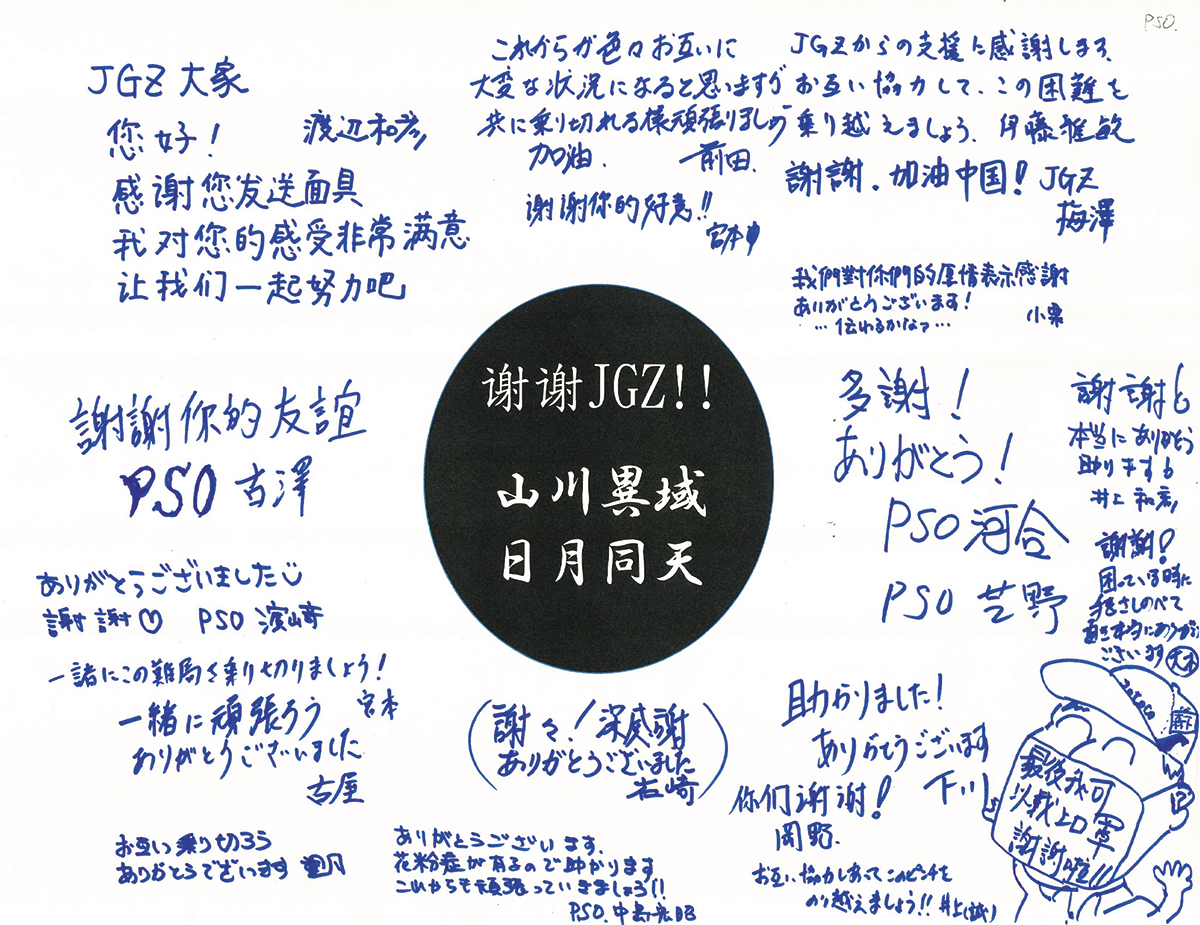 PSO.
JGZ 大家
您好！
渡辺和彦
感谢您发送面具
我对您的感受非常满意
让我们一起努力吧
これからが色々お互いに
大変な状況になると思いますが
共に乗り切れる様頑張りましょう
加油.
前田.
谢谢你的好意!!
宮本
JGZからの支援に感謝します.
お互い協力して、この困難を
乗り越えましょう. 伊藤雅敏
謝謝.加油中国! JGZ
梅澤
我們對你們的厚情表示感謝
ありがとうございます!
…伝わるかなァ…
小栗
谢谢JGZ!!
山川異域
日月同天
謝謝你的友誼
PSO 古澤
多謝!
ありがとう!
PSO 河合
PSO 芝野
謝謝
本当にありがとう
助ります
井上和彦
謝謝!
困っている時に
手をさしのべて
本当にありがとう
ございます
ありがとうございました
謝謝♡ PSO 濱崎
一諸にこの難局を乗り切りましょう!
宮本
一緒に頑張ろう
ありがとうございました
古屋
(謝々! 深感謝
ありがとうございました
岩崎)
助かりました!
ありがとうございます
下川
你们谢谢!
岡野.
お互い協力しあってこのピンチを
のり越えましょう!! 井上(誠)
お互い乗り切ろう
ありがとうでざいます
ありがとうございます.
花粉症が有るので助かります
これからも頑張っていきましょう!!
PSO.中島
最後我可
以戴上口罩
謝謝啦!!